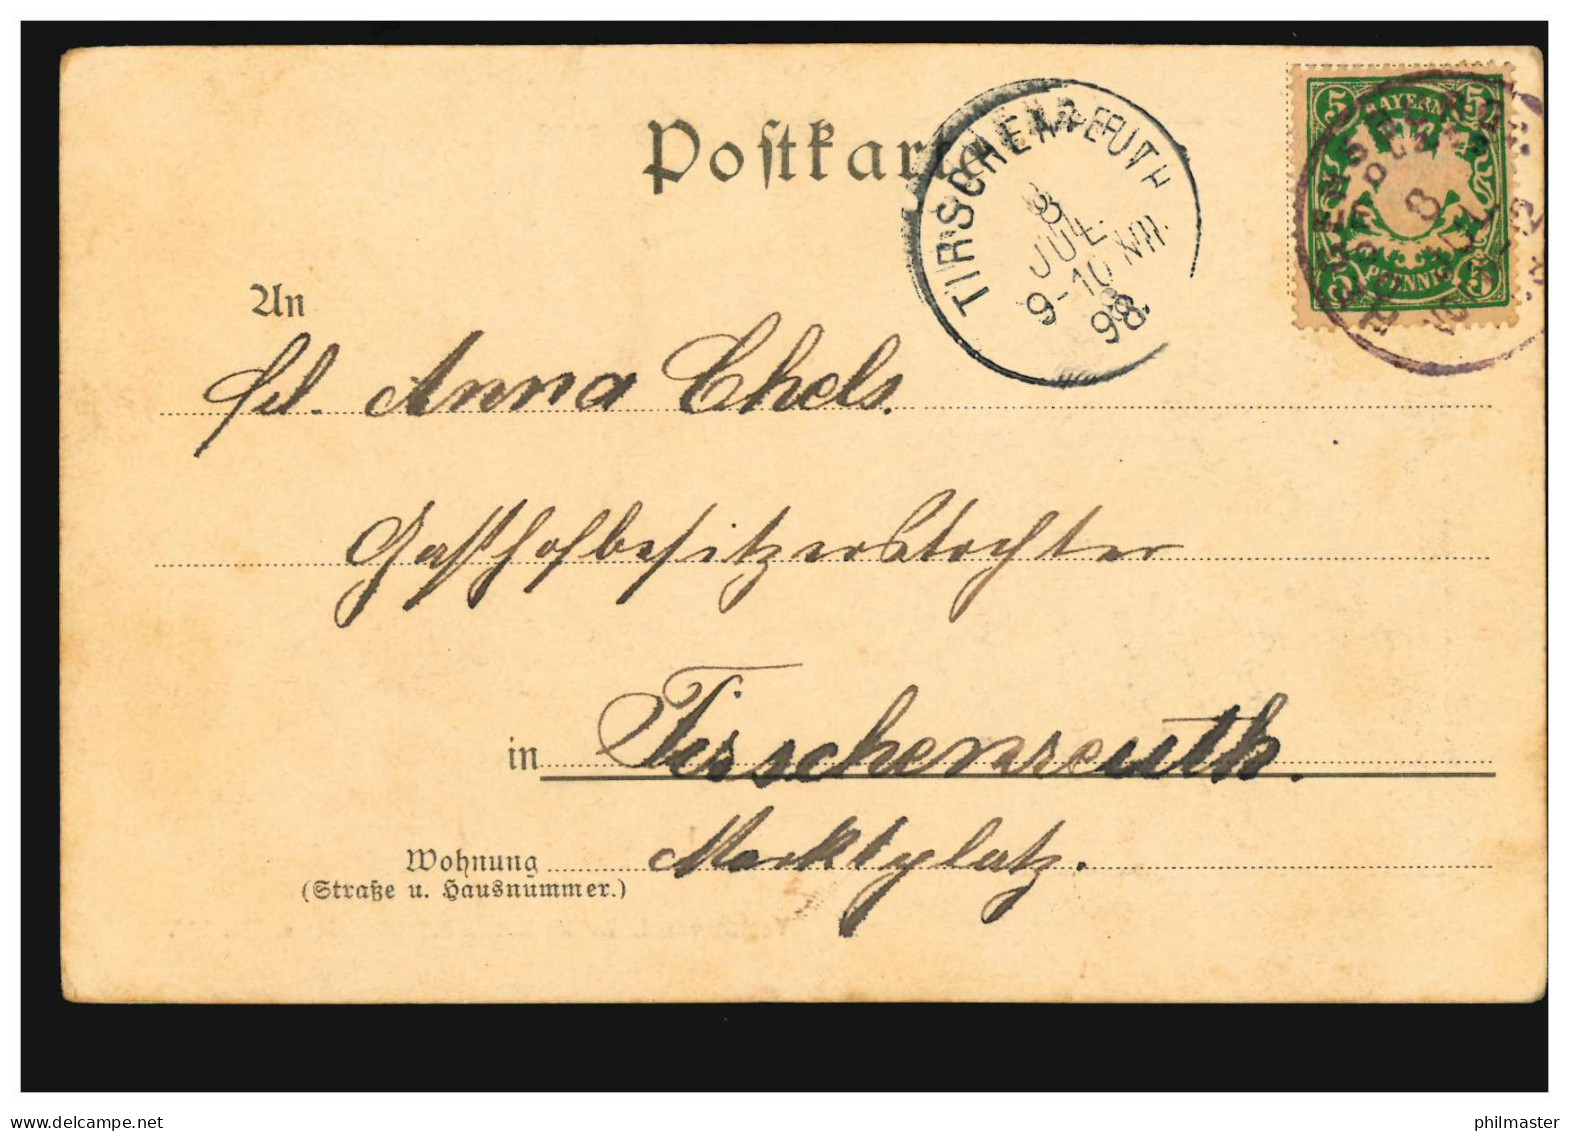 Postkarte
TIRSCHENREUTH
JUL.
9-10 VII.
98.
5 BAYERN 5
5 PFENNIG 5
An
Frl. Anna Chels.
Gasthofbesitzerstochter
in Tirschenreuth.
Wohnung Marktplatz.
(Straße u. Hausnummer.)
www.delcampe.net
philmaster